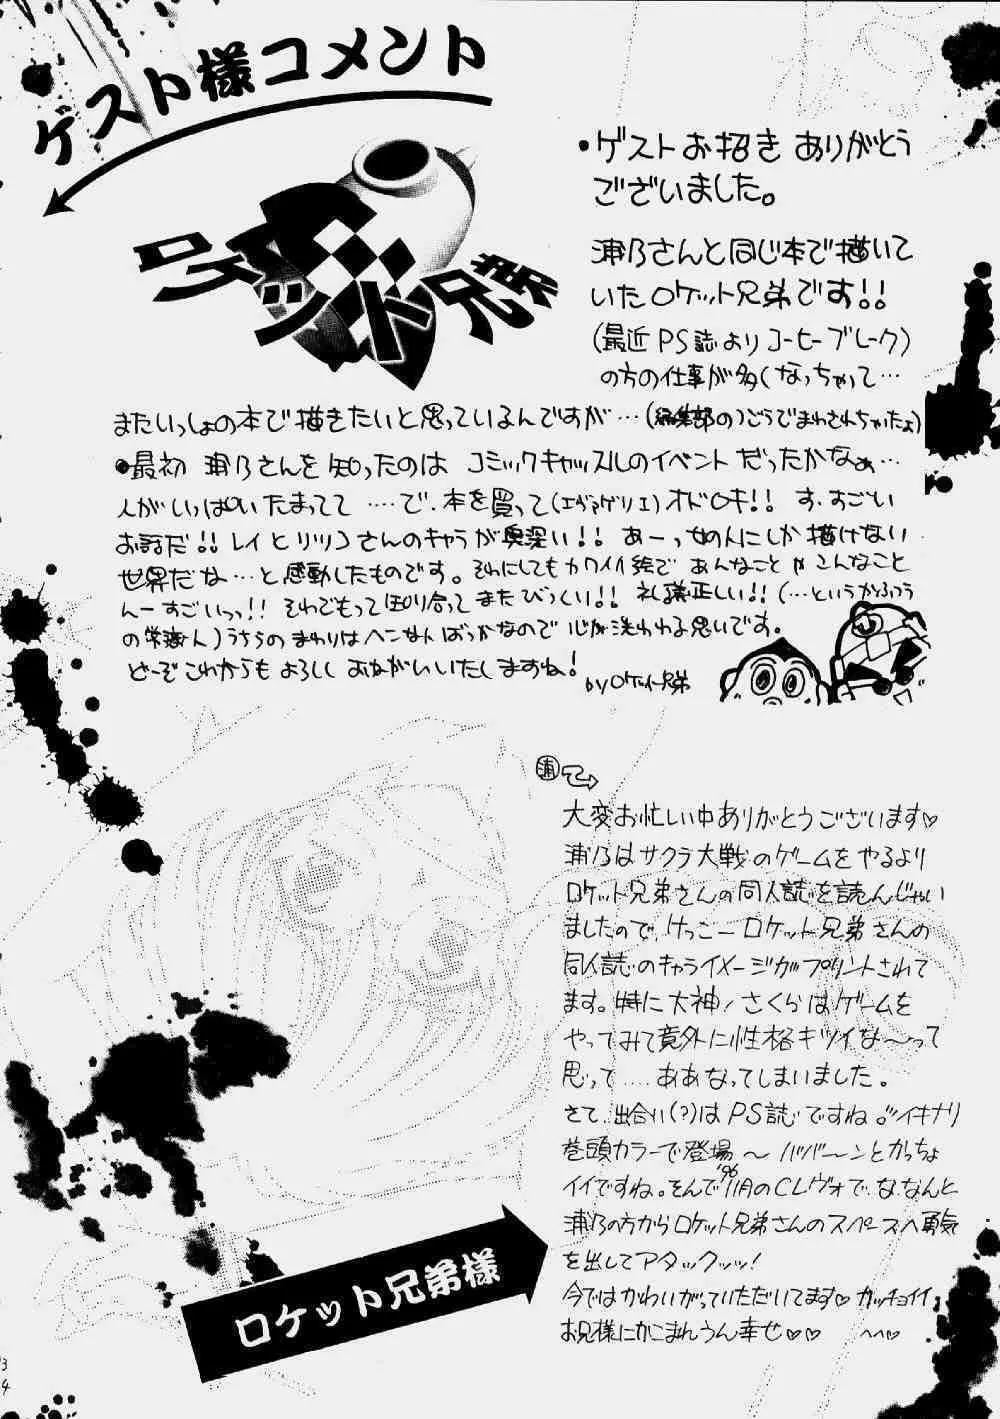 ゲスト様コメント
ロケット兄弟
•ゲストお招き ありがとう
ございました。
浦乃さんと同じ本で描いて
いたロケット兄弟です!!
(最近PS誌よりコーヒーブレーク)
の方の仕事が多くなっちゃって…
またいっしょの本で描きたいと思っているんですが…(編集部のつごうでまわされちゃいたよ)
•最初 浦乃さんを知ったのは コミックキャッスルのイベントだったかなぁ…
人がいっぱいたまってて ……で、本を買って(エヴァゲリエ)オドロキ!! す、すごい
お話だ!! レイとリツコさんのキャラが奥深い!! あーっ女の人にしか描けない
世界だな…と感動したものです。それにしてもカワイイ絵で あんなこと や こんなこと
んーすごいっっ!! それでもって知り合って またびっくり!! 礼儀正しい!!(…というかふつう
の常識人)うちらの まわりはヘンな人ばっかなので 心が洗われる思いです。
どーぞこれからも よろしく おねがいいたしますね!
byロケット兄弟
浦
大変お忙しい中ありがとうございます♡
浦乃はサクラ大戦のゲームをやるより
ロケット兄弟さんの同人誌を読んじゃい
ましたので、けっこーロケット兄弟さんの
同人誌のキャライメージがプリントされて
ます。特に大神!さくらはゲームを
やってみて意外に性格キツイな〜って
思って……ああなってしまいました。
さて、出合い(?)はPS誌ですね。イキナリ
巻頭カラーで登場〜ババーンとかっちょ
イイですね。そんで'96 11月のCレヴォで、な、なんと
浦乃の方からロケット兄弟さんのスペースへ勇気
を出してアタックッッ!
今ではかわいがっていただいてます♡ カッチョイイ
お兄様にかこまれうん幸せ♡♡ ^^♡
ロケット兄弟様
34